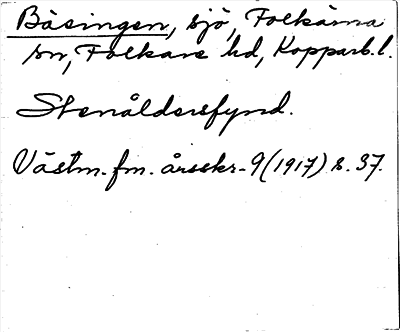 Bäsingen, sjö, Folkärna
sn, Folkare hd, Kopparb. l.
Stenåldersfynd.
Västm. fm. årsskr. 9 (1917) s. 37.